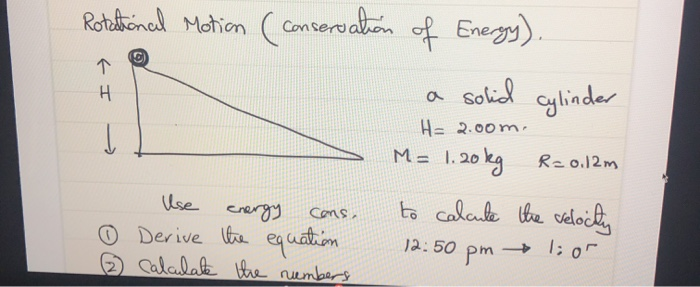 Rotational Motion (Conservation of Energy).
H
a solid cylinder
H = 2.00m.
M = 1.20 kg R = 0.12m
Use energy cons. to calculate the velocity
① Derive the equation 12:50 pm → 1:05
② Calculate the numbers